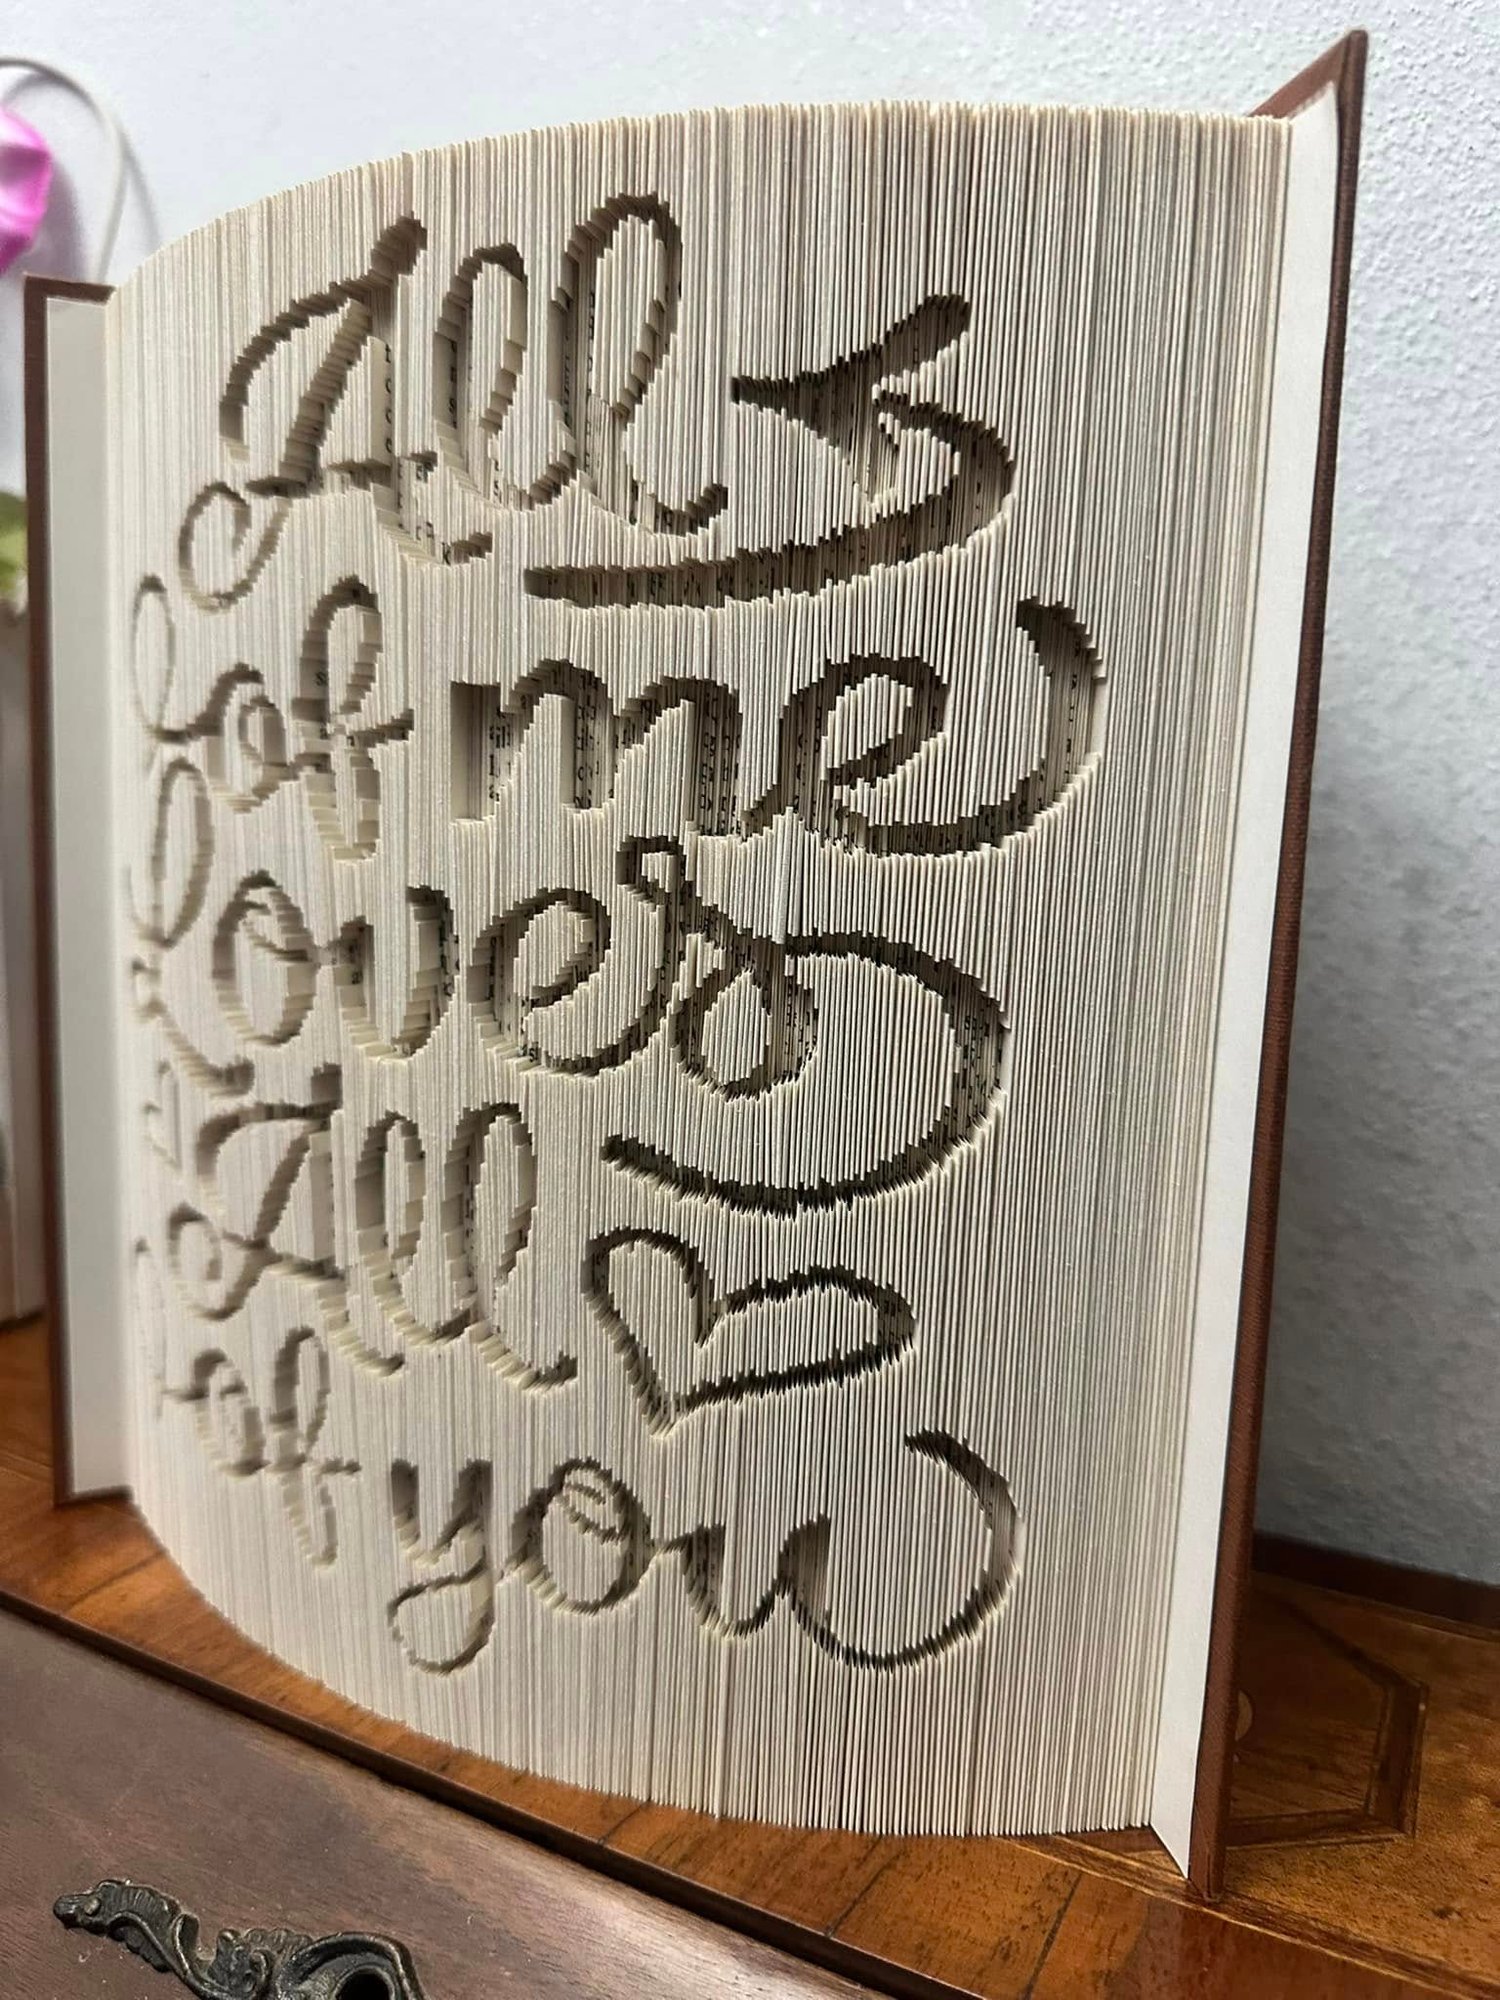 All
of me
Loves
All
of you